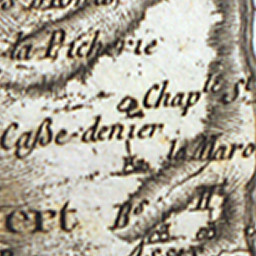 la Picherie
Chap.^le S^t
Caße-denier
la Maro
ert B^s H^t